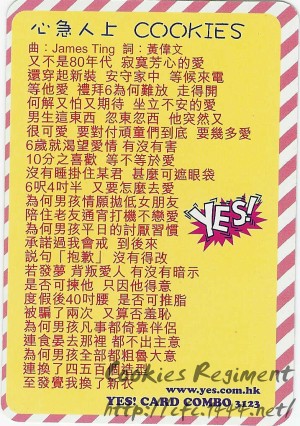 心急人上 COOKIES
曲：James Ting 詞：黃偉文
又不是80年代 寂寞芳心的愛
還穿起新裝 安守家中 等候來電
等他愛 禮拜6為何難放 走得開
何解又怕又期待 坐立不安的愛
男生這東西 忽東忽西 他突然又
很可愛 要對付頑童們到底 要幾多愛
6歲就渴望愛情 有沒有害
10分之喜歡 等不等於愛
沒有睡掛住某君 甚麼可遮眼袋
6呎4吋半 又要怎麼去愛
為何男孩情願拋低女朋友
陪住老友通宵打機不戀愛
為何男孩平日的討厭習慣
承諾過我會戒 到後來
説句「抱歉」沒有得改
若發夢 背叛愛人 有沒有暗示
是否可揀他 只因他得意
度假後40吋腰 是否可推脂
被騙了兩次 又算否羞恥
為何男孩凡事都倚靠伴侶
連食晏去那裡 都不出主意
為何男孩全部都粗魯大意
連換了四五百個造型
至發覺我換了新衣
YES!
Cookies Regiment
www.yes.com.hk
YES! CARD COMBO 3123
http://cfc.1444.net/